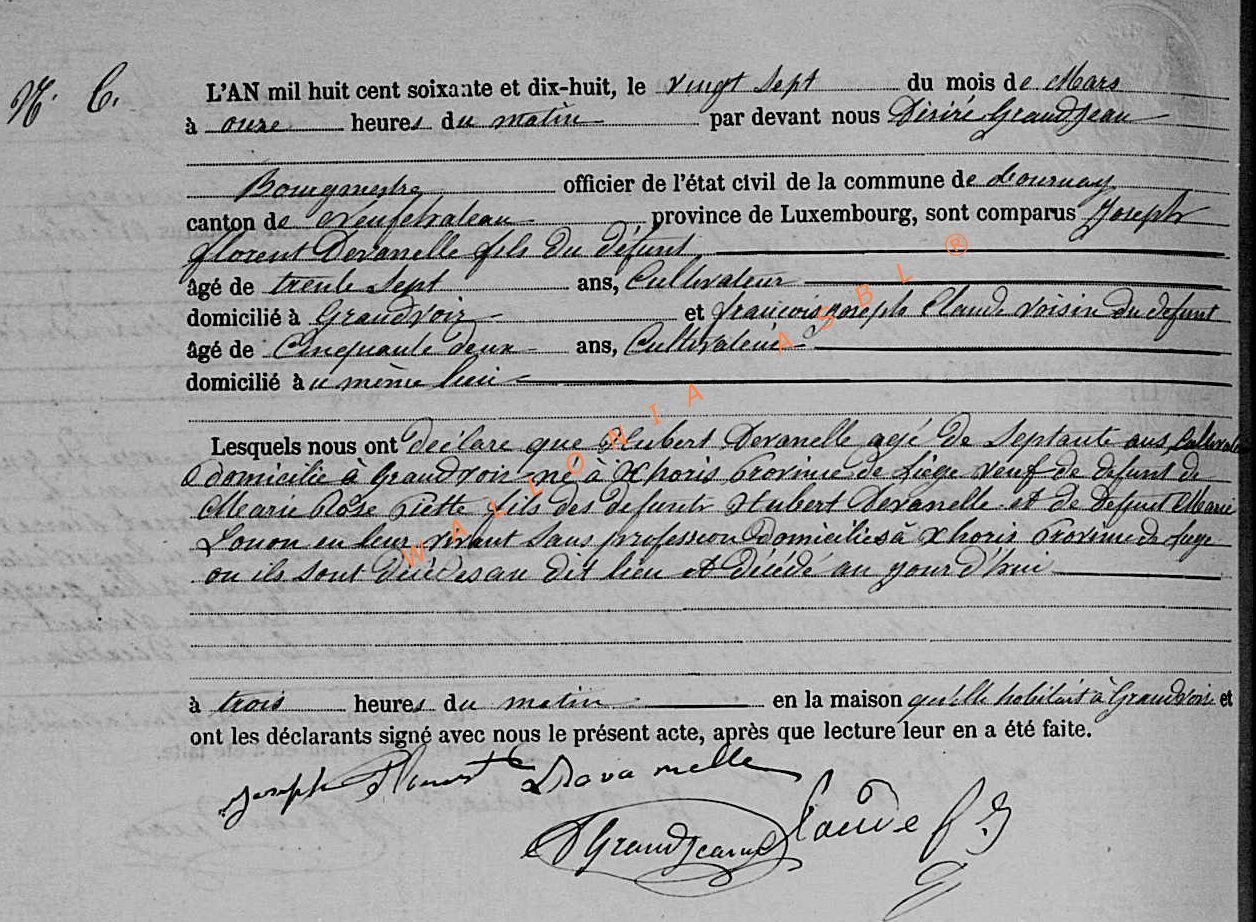 N. C.
L'AN mil huit cent soixante et dix-huit, le vingt sept du mois de Mars
à onze heures du matin par devant nous Désiré Grandjean
Bourgmestre officier de l'état civil de la commune de Tournay
canton de Neufchateau province de Luxembourg, sont comparus Joseph
florent Devanelle fils du défunt
âgé de trente Sept ans, Cultivateur
domicilié à Grandvoir et francois Joseph Claude voisin du defunt
âgé de Cinquante deux ans, Cultivateur
domicilié à u même lieu
Lesquels nous ont déclare que Hubert Devanelle agé de Septante ans, Cultivateur
domicilie à Grandvoir né à Xhoris Province de Liège veuf de defunt de
Marie Rose fils des defunts Hubert Devanelle et de defunt Marie
Louon en leur vivant Sans profession domiciliés à Xhoris Province de Liege
ou ils sont décédes au dit lieu et décédé au jourd'hui
à trois heures du matin en la maison qu'elle habitait à Grandvoir et
ont les déclarants signé avec nous le présent acte, après que lecture leur en a été faite.
Joseph Florent Devanelle
DGrandjean Claude f J
WALLONIA ASBL ®